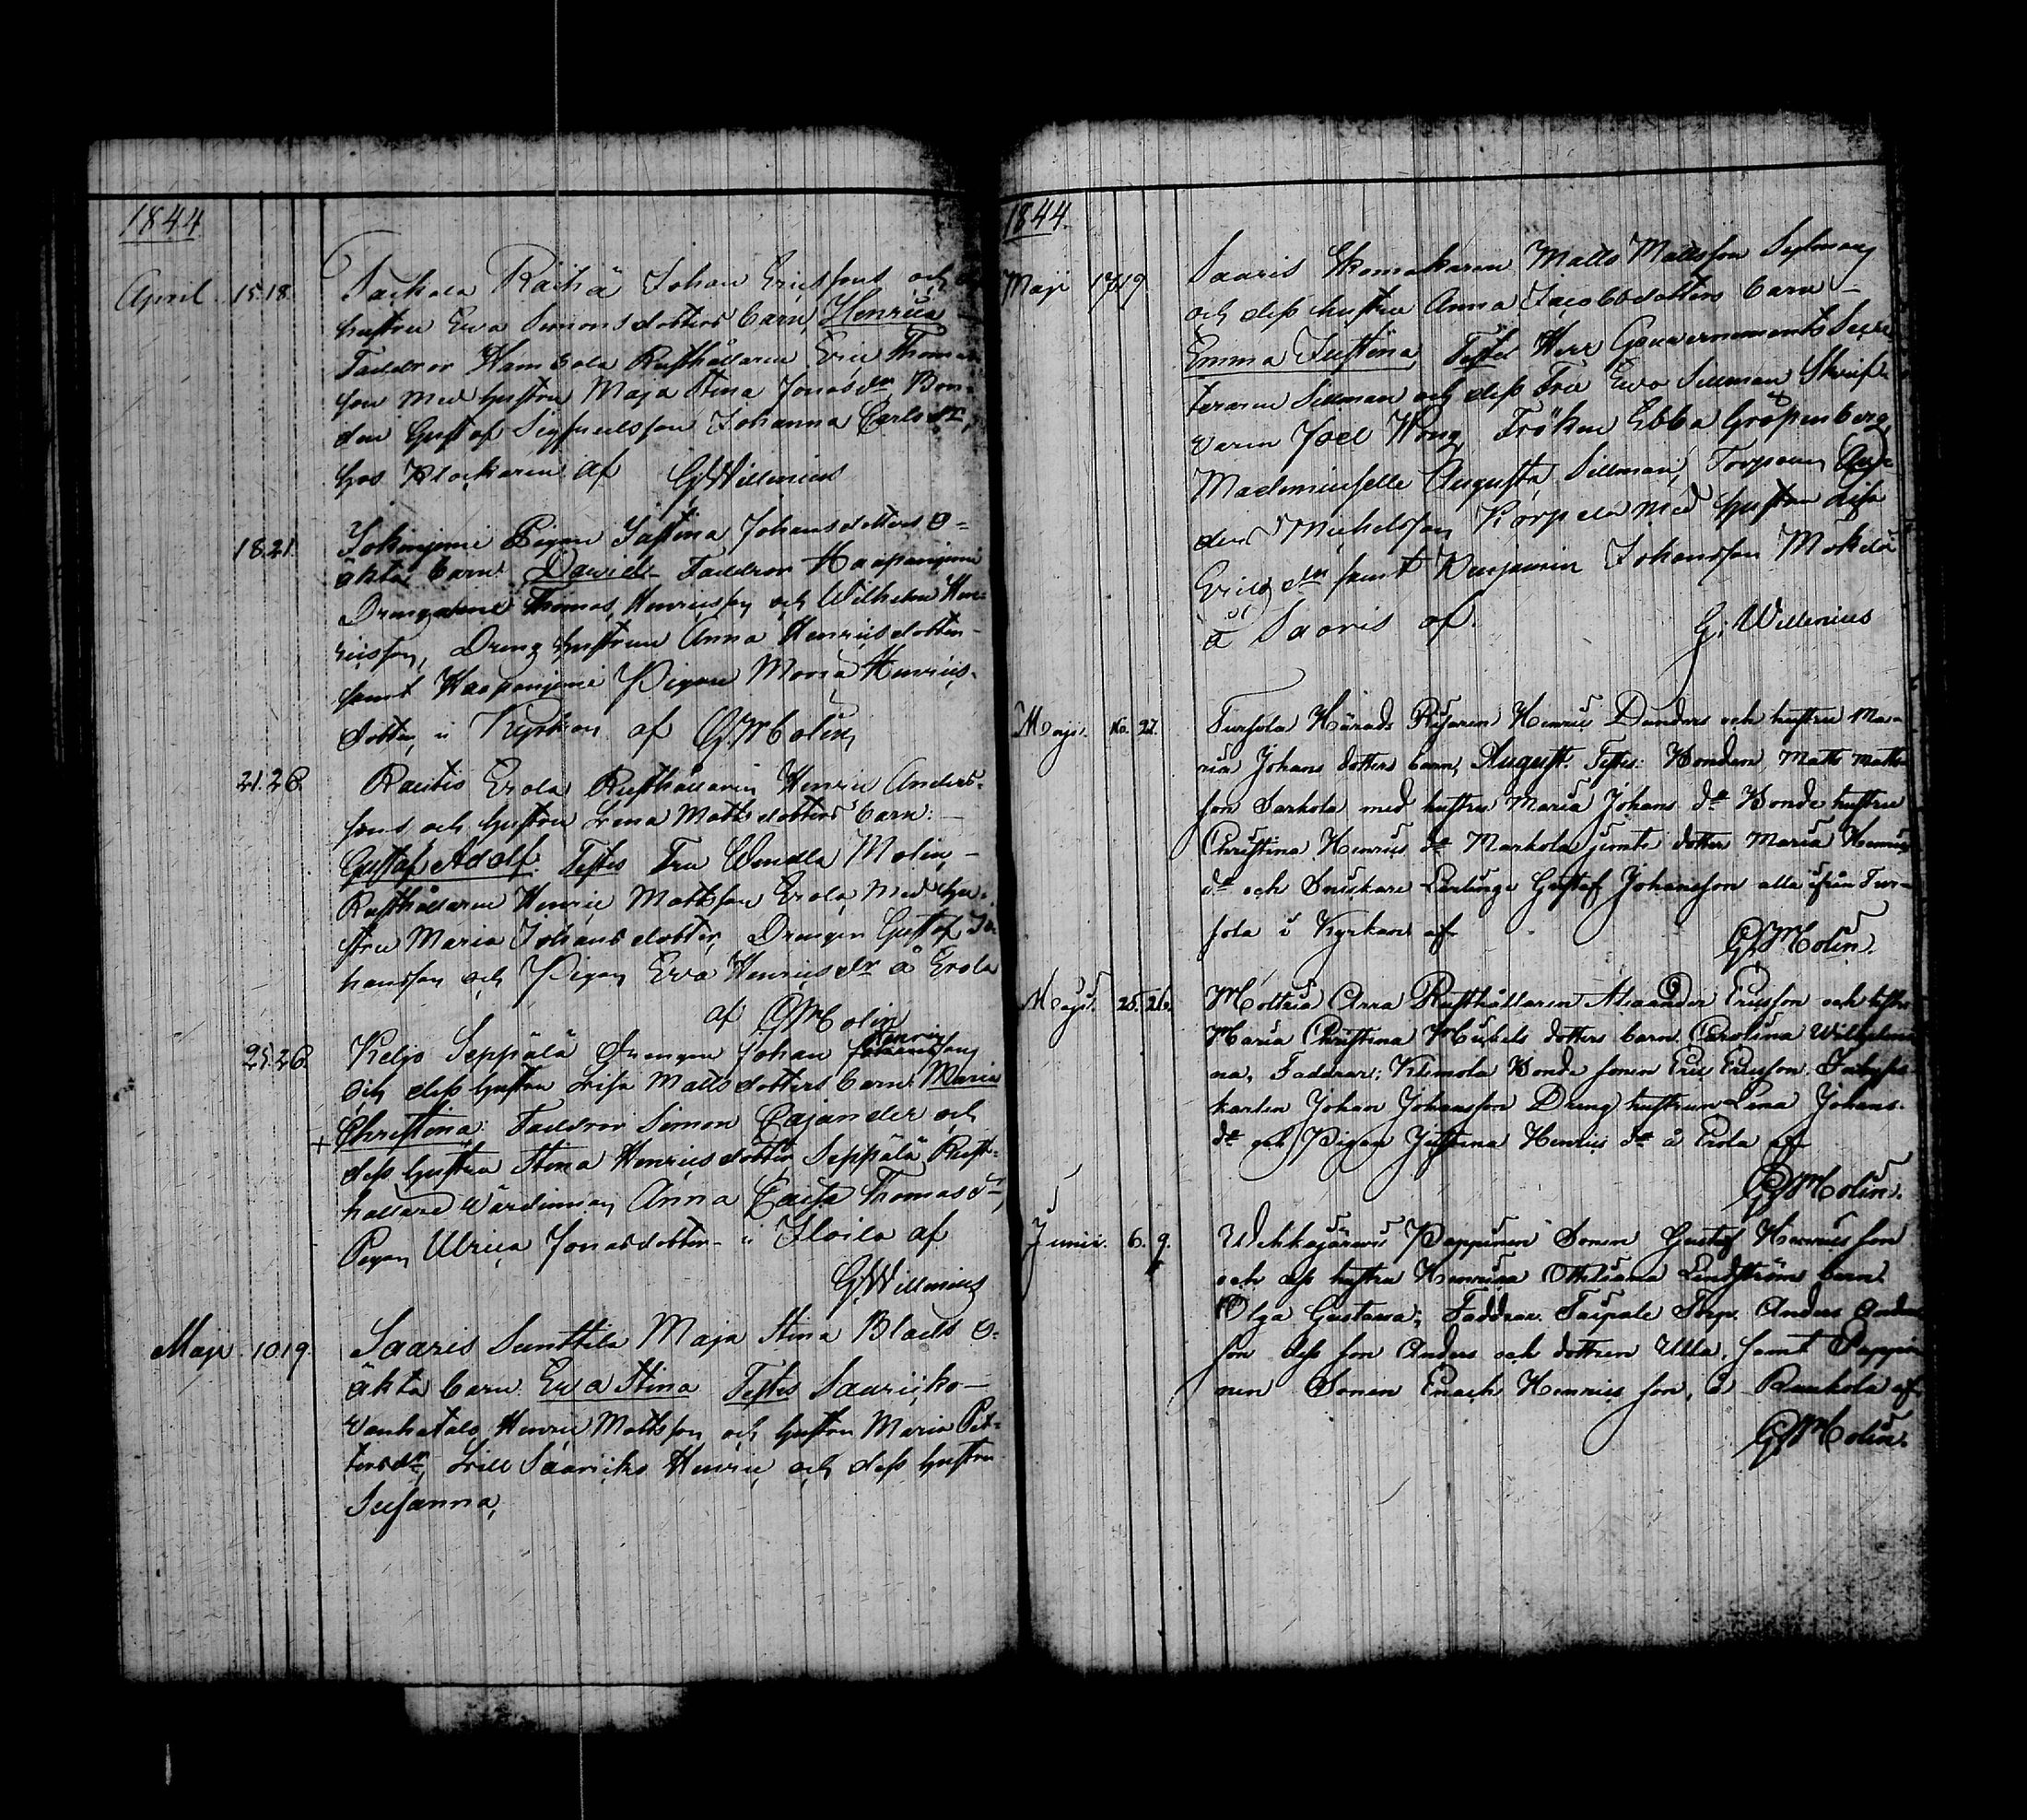 1844
April 15.18. Raihä Johan Ericssons och
hustru Eva Simonsdotters barn, Henrica
Faddrar Rusthållaren Eric Thomas
son med hustru Maja Stina Jonasdr Bon-
den Gustaf Sigfredsson Johanna Carlsdr,
hos Klockaren af GWillenius
18.21. Pigan Justina Johansdotters o-
äkta barn David Faddrar Haapaniemi
Drengarne Thomas Henricsson och Wilhelm Hen-
ricsson, Dreng hustrun Anna Henricsdotter
samt Haapaniemi Pigan Maria Henrics-
dotter, i Kyrkan af GMolin
21.28. Rautis Erola Rusthållaren Henric Anders-
sons och hustru Lena Mattsdotters barn:
Gustaf Adolf. Testes Fru Wendla Molin,
Rusthållaren Henric Mattsson Erola med hu-
stru Maria Johansdotter, Drengen Gustaf Jo-
hansson och Pigan Eva Henricsdr å Erola
af GMolin
25.28. Keljo Seppälä Drengen Johan Henrics
och dess hustru Lisa Mattsdotters barn Maria
+ Christina: Faddrar Simon Cajander och
dess hustru Stina Henricsdotter Seppälä Rust-
hållare Värdinnan Anna Caisa Thomasdr,
Pigan Ulrica Jonasdotter i Iloila af
GWillenius
Maji 10.19. Saaris Sunttila Maja Stina Blads o-
äkta barn Eva Stina Testes Saaricko
Vanhatalo Henric Mattsson och hustru Maria Pet-
tersdr, Lill Saaricko Henric och dess hustru
Susanna,
1844.
Maji 17.19 Saaris Skomakaren Matts Mattsson
och dess hustru Anna Jacobsdotters barn
Emma Justina, Testes Herr Gouvernements Secre
teraren Sillman och dess Fru Eva Sillman Skrif-
varen Joel Fröken Ebba Gröpenberg
Mademoiselle Augusta Sillman, Torparen
Michelsson Korpela med hustru Lisa
Ericsdr samt Benjamin Johansson
å Saaris af. G. Willenius
Maji. 22. Tursola Härads Henric Dunders och hustru Ma-
ria Johans dotters barn, August. Testes: Bonden Matts Matts
son Sarkola med hustru Maria Johans dr Bonde hustru
Christina Henrics dr Markola jemte dotter Maria Henrics
dr och Snickare Lärlinge Gustaf Johansson alla ifrån Tur-
sola i Kyrkan af
GMolin.
Maji. 25. 26. Moltzia Arra Rusthållaren Alexander Ericsson och hustru
Maria Christina Mickels dotters barn. Carolina Wilhelmi
na, Faddrar: Klemola Bonde sonen Eric Ericsson.
karlen Johan Johansson Dreng hustrun Lena Johans
dr och Pigan Justina Henrics dr å Erola af
GMolin.
Junii. 6. 9. Wehkajärwi Pappinen Sonen Gustaf Henrics son
och dess hustru Henrica Ottiliana Lindström barn.
Olga Gustava; Faddrar. Taipale Torp. Anders Anders
son dess son Anders och dottren Ulla, samt Pappi
nen Sonen Enoch Henrics son, å Raukola af
GMolin.